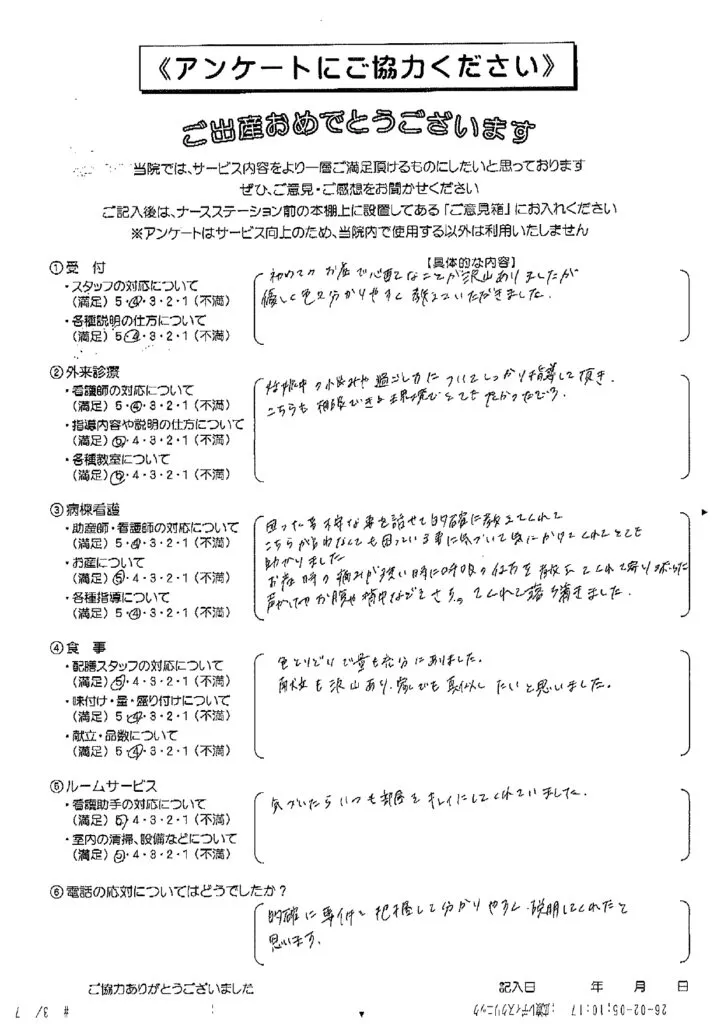 《アンケートにご協力ください》
ご出産おめでとうございます
当院では、サービス内容をより一層ご満足頂けるものにしたいと思っております
ぜひ、ご意見・ご感想をお聞かせください
ご記入後は、ナースステーション前の本棚上に設置してある「ご意見箱」にお入れください
※アンケートはサービス向上のため、当院内で使用する以外は利用いたしません
【具体的な内容】
①受 付
・スタッフの対応について
(満足) 5・4・3・2・1 (不満)
・各種説明の仕方について
(満足) 5・4・3・2・1 (不満)
初めてのお産で心配なことが沢山ありましたが
優しく 分かりやすく 教えていただきました.
②外来診療
・看護師の対応について
(満足) 5・4・3・2・1 (不満)
・指導内容や説明の仕方について
(満足) 5・4・3・2・1 (不満)
・各種教室について
(満足) 5・4・3・2・1 (不満)
妊娠中の悩みや過ごし方についてしっかり指導して頂き.
こちらも相談できる環境でとても
③病棟看護
・助産師・看護師の対応について
(満足) 5・4・3・2・1 (不満)
・お産について
(満足) 5・4・3・2・1 (不満)
・各種指導について
(満足) 5・4・3・2・1 (不満)
困った事 な事を話せて的確に教えてくれて
こちらが言わなくても困っている事に気づいて気にかけてくれとても
助かりました
お産時の痛みが強い時に呼吸の仕方を教えてくれて
声かけやお腹や背中などをさすってくれて落ち着きました.
④食 事
・配膳スタッフの対応について
(満足) 5・4・3・2・1 (不満)
・味付け・量・盛り付けについて
(満足) 5・4・3・2・1 (不満)
・献立・品数について
(満足) 5・4・3・2・1 (不満)
色とりどりで量も充分にありました.
献立も沢山あり.家でも真似したいと思いました.
⑤ルームサービス
・看護助手の対応について
(満足) 5・4・3・2・1 (不満)
・室内の清掃、設備などについて
(満足) 5・4・3・2・1 (不満)
気づいたらいつも部屋をキレイにしてくれていました.
⑥電話の応対についてはどうでしたか?
的確に事件を把握して分かりやすく.説明してくれたと
思います.
ご協力ありがとうございました
記入日 年 月 日
26-02-05;10:17
レディスクリニック
# 3/ 7